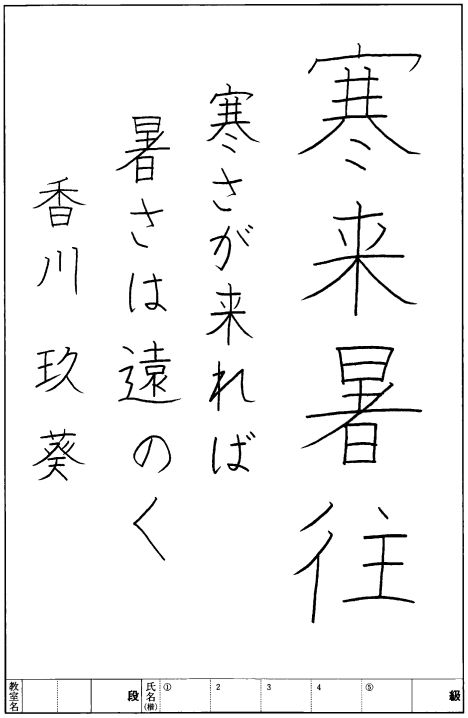 寒来暑往
寒さが来れば
暑さは遠のく
香川 玖葵
級
⑤
4
3
2
①
氏名(権)
段
教室名